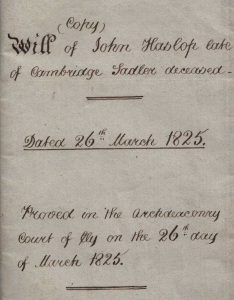 (Copy)
Will of John Haslop late
of Cambridge Sadler deceased -
Dated 26th March 1825.
Proved in the Archdeaconry
Court of Ely on the 26th day
of March 1825.